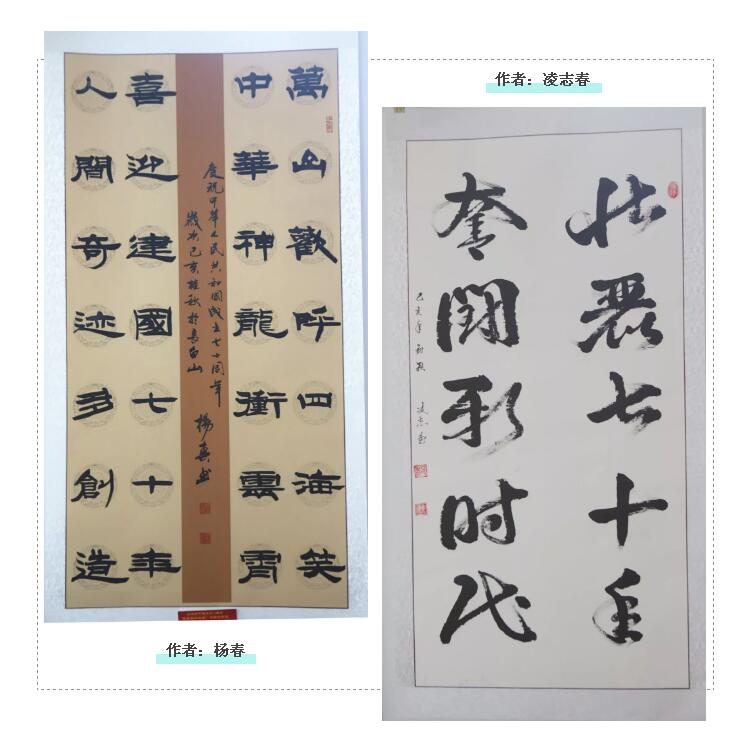 作者：凌志春
萬山歡呼四海笑
中華神龍衝雲霄
慶祝中華人民共和國成立七十周年
歲次己亥桂秋於長白山 楊春书
喜迎建國七十年
人間奇迹多創造
壮麗七十年
奮鬪新时代
己亥年初秋 凌志春
作者：杨春